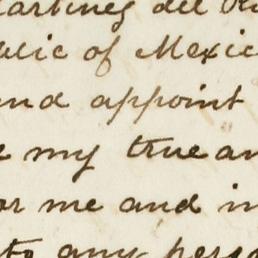 artines del
blic of Mexic
and appoint
my true an
or me and in
to any perso